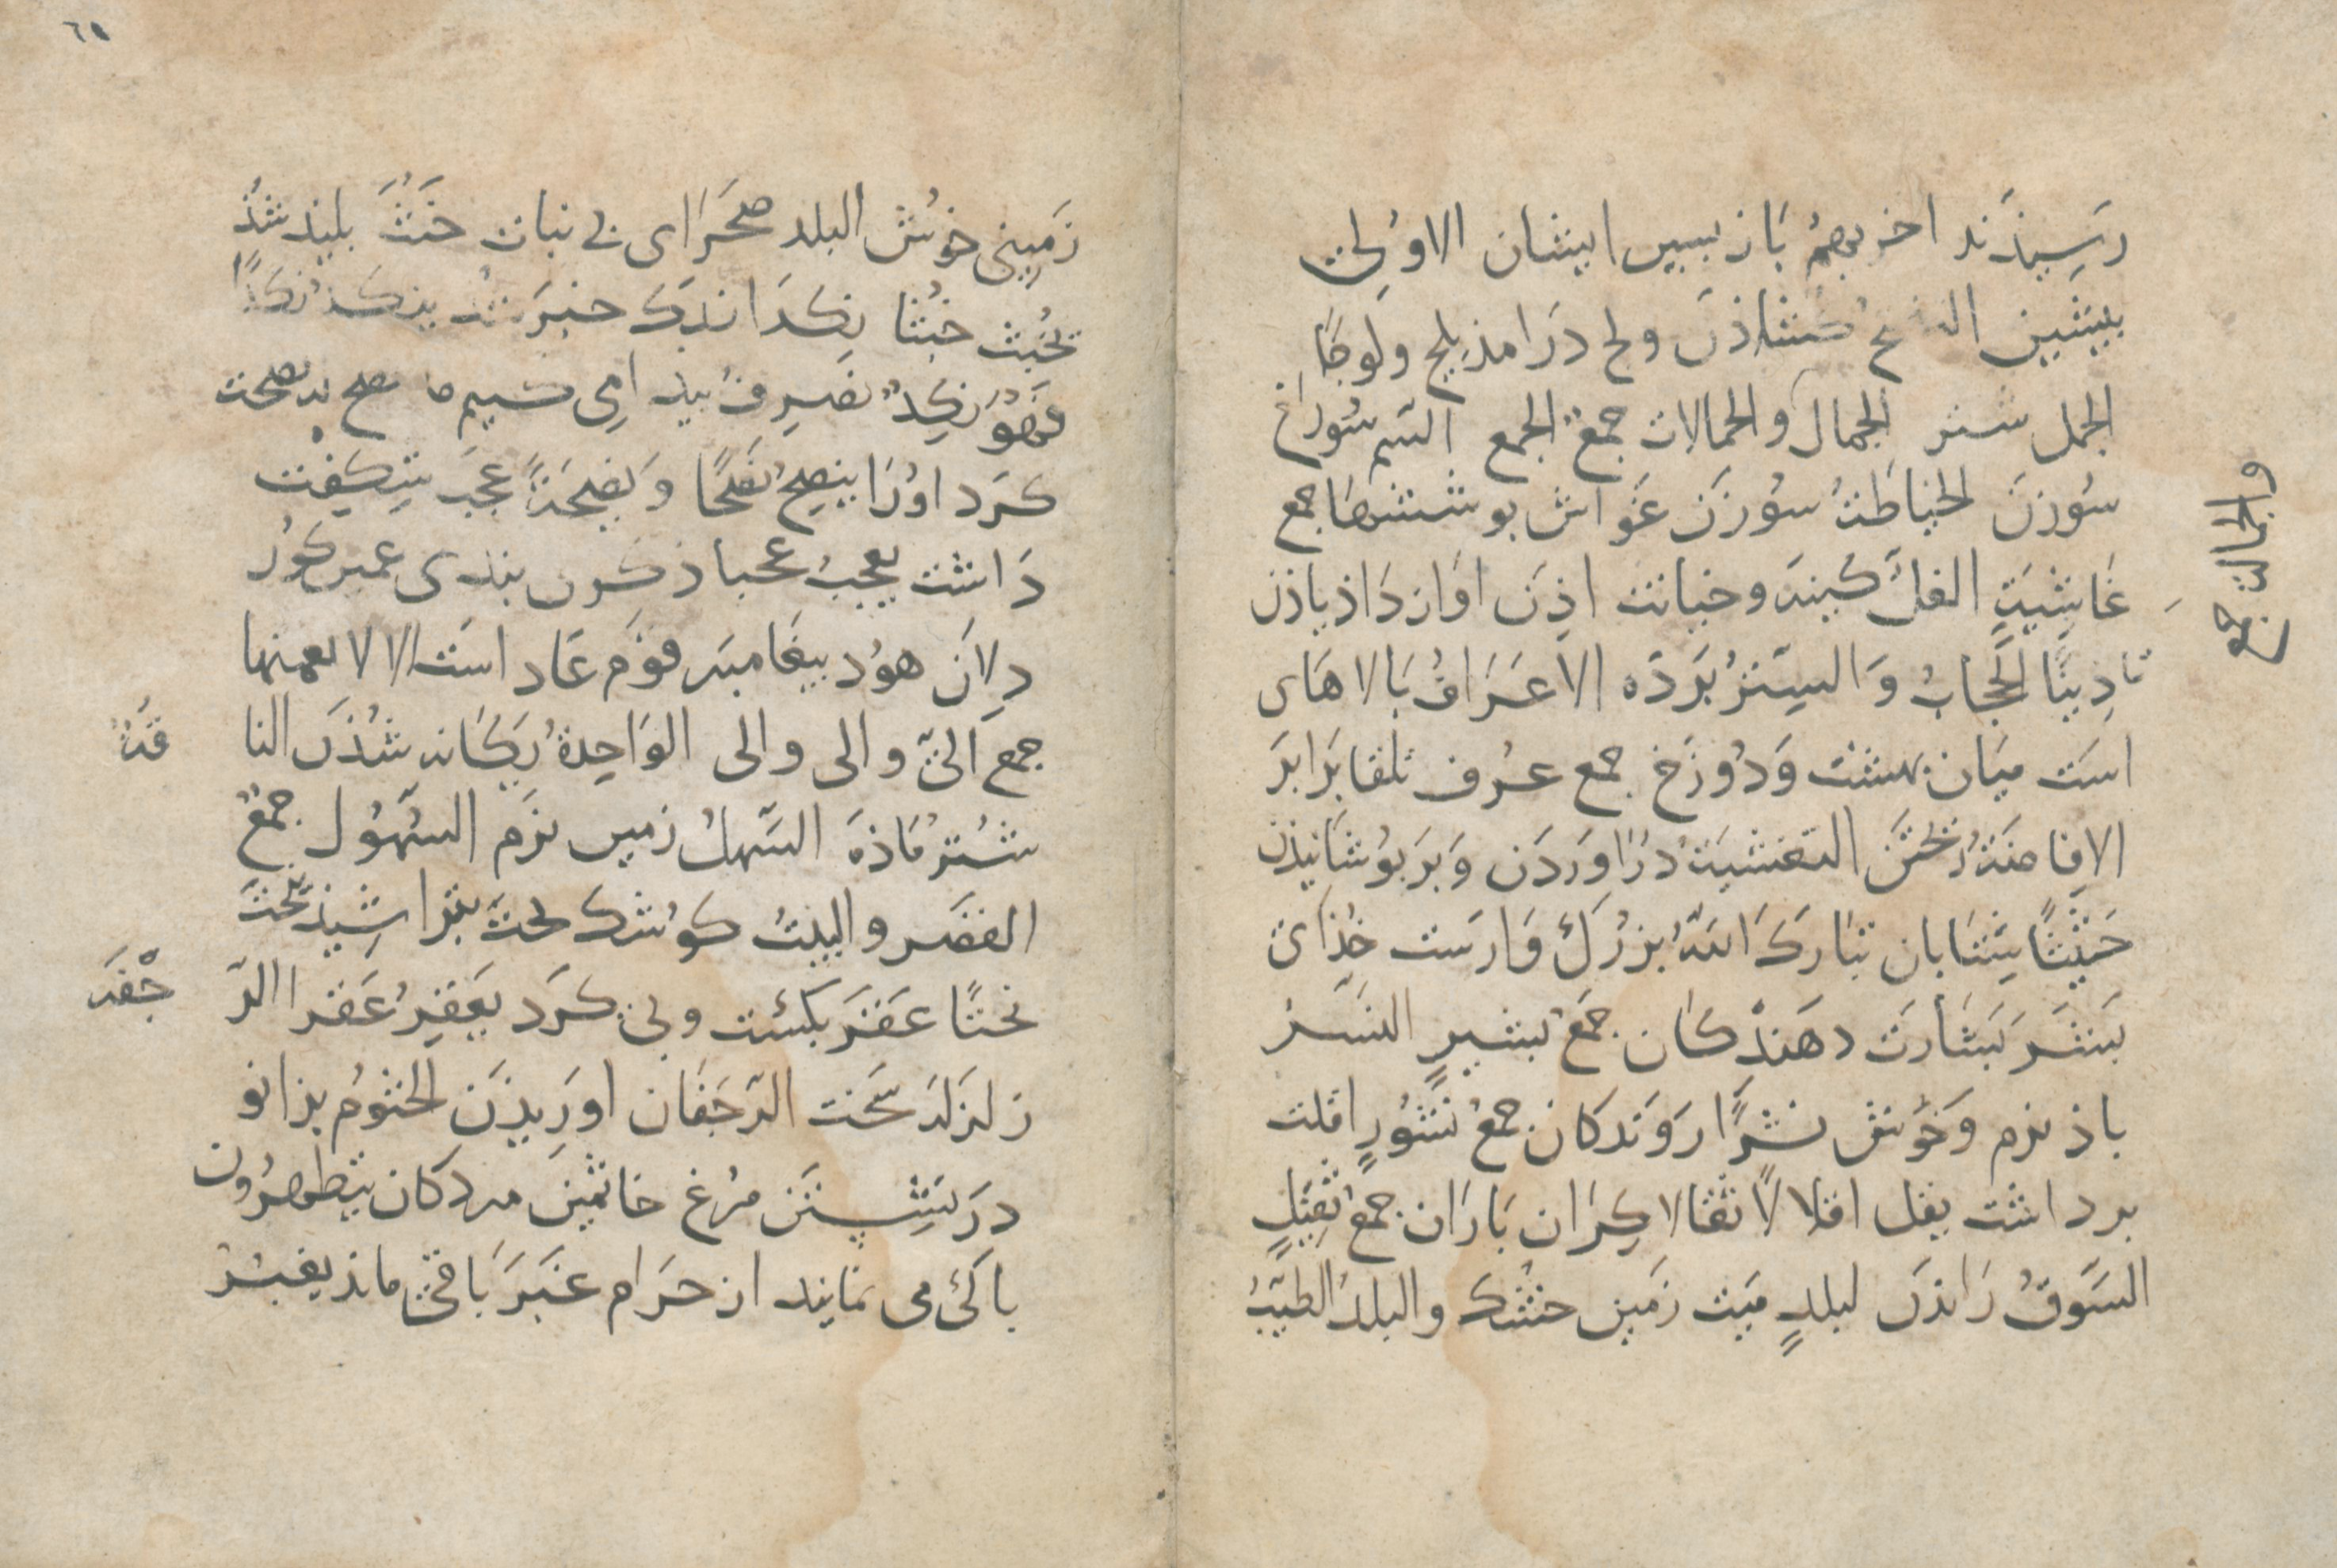 رَسِیذَند اخریهمُ بَازبسین ایشان الاوُلی
بیشین کشاذن ولج دَرامذ یلج ولوجًا
الجمل شتر الجمال والجمالات جمعُ الجمع السّم سُوراخ
سُوزنَ الخیاطتُ سُوزَن غوَاش بوششها جمع
غَاشِیَتٍ الغلّ کینه وخیانت اذِنَ اوَاز دَاذ یاذن
تاذِینًا الحِجَابُ وَالسِتُر بَردَه الاعرَافُ بَالاهَای
است میَان بهشت وَدُوزَخ جمع عرُف تلقا برَابَر
الاِفاضَتُ رختَن التغشیَتُ دَراورَدَن وَبربوُشَانیذن
حَثِیثًا شِتابان تبَارکَ اللهُ بزرُک وَارست خُذَای
بَشَر بَشارَت دهَندکان جمعُ بشیرٍ النشر
باذ نرم وَخوَش نشرًا روَندکان جمعُ نشُورٍ اقلت
برداشت یقل اقلالًا ثقالا کِرَان بَارَان جمعُ ثقِیلٍ
السَوقُ رَانذن لبلدٍ مَیت زَمین خشک والبلدُ الطیّبُ
والجمالت جمع
٦٥
زمینی خوُش البلد صحَرَای بی نبات خبثَ بلیذ شذ
یخبُث خبُثا نکِدَا اندَک خیر شد ینکد نکدًا
فهَوُ نکِدٌ نصرف
کرَد اوُرَا ینصِحُ نصحًا وَنصِیحَةً عجبَ شِکِفت
دَاشت یعجبُ عجبا ذکرون بندی عمین کوُر
دِلانَ هوُد بیغامبر قوَم عَاد است الالا نعمتها
جمع الیّ والی والی الوَاحِدةُ یکانه شُذن النا
قَةُ
شتُر مَاذَه السّهلُ زمین نرَم السّهوُل جمعُ
القصَر والبیتُ کوُشک نحتَ بتراشِیذ ینحتُ
نحتًا عقَرَ بکشت وبی کرَد یعقِرُ عَقرا الرّ
جْفَه
زلزله سخت الرّجَفَان اورِیذن الجثوُم بزانو
درَنشِستن مرغ جاثمین مردکان یتطهرُون
باکی می نمایند از حرَام غبَرَ باقی ماند یغبُر